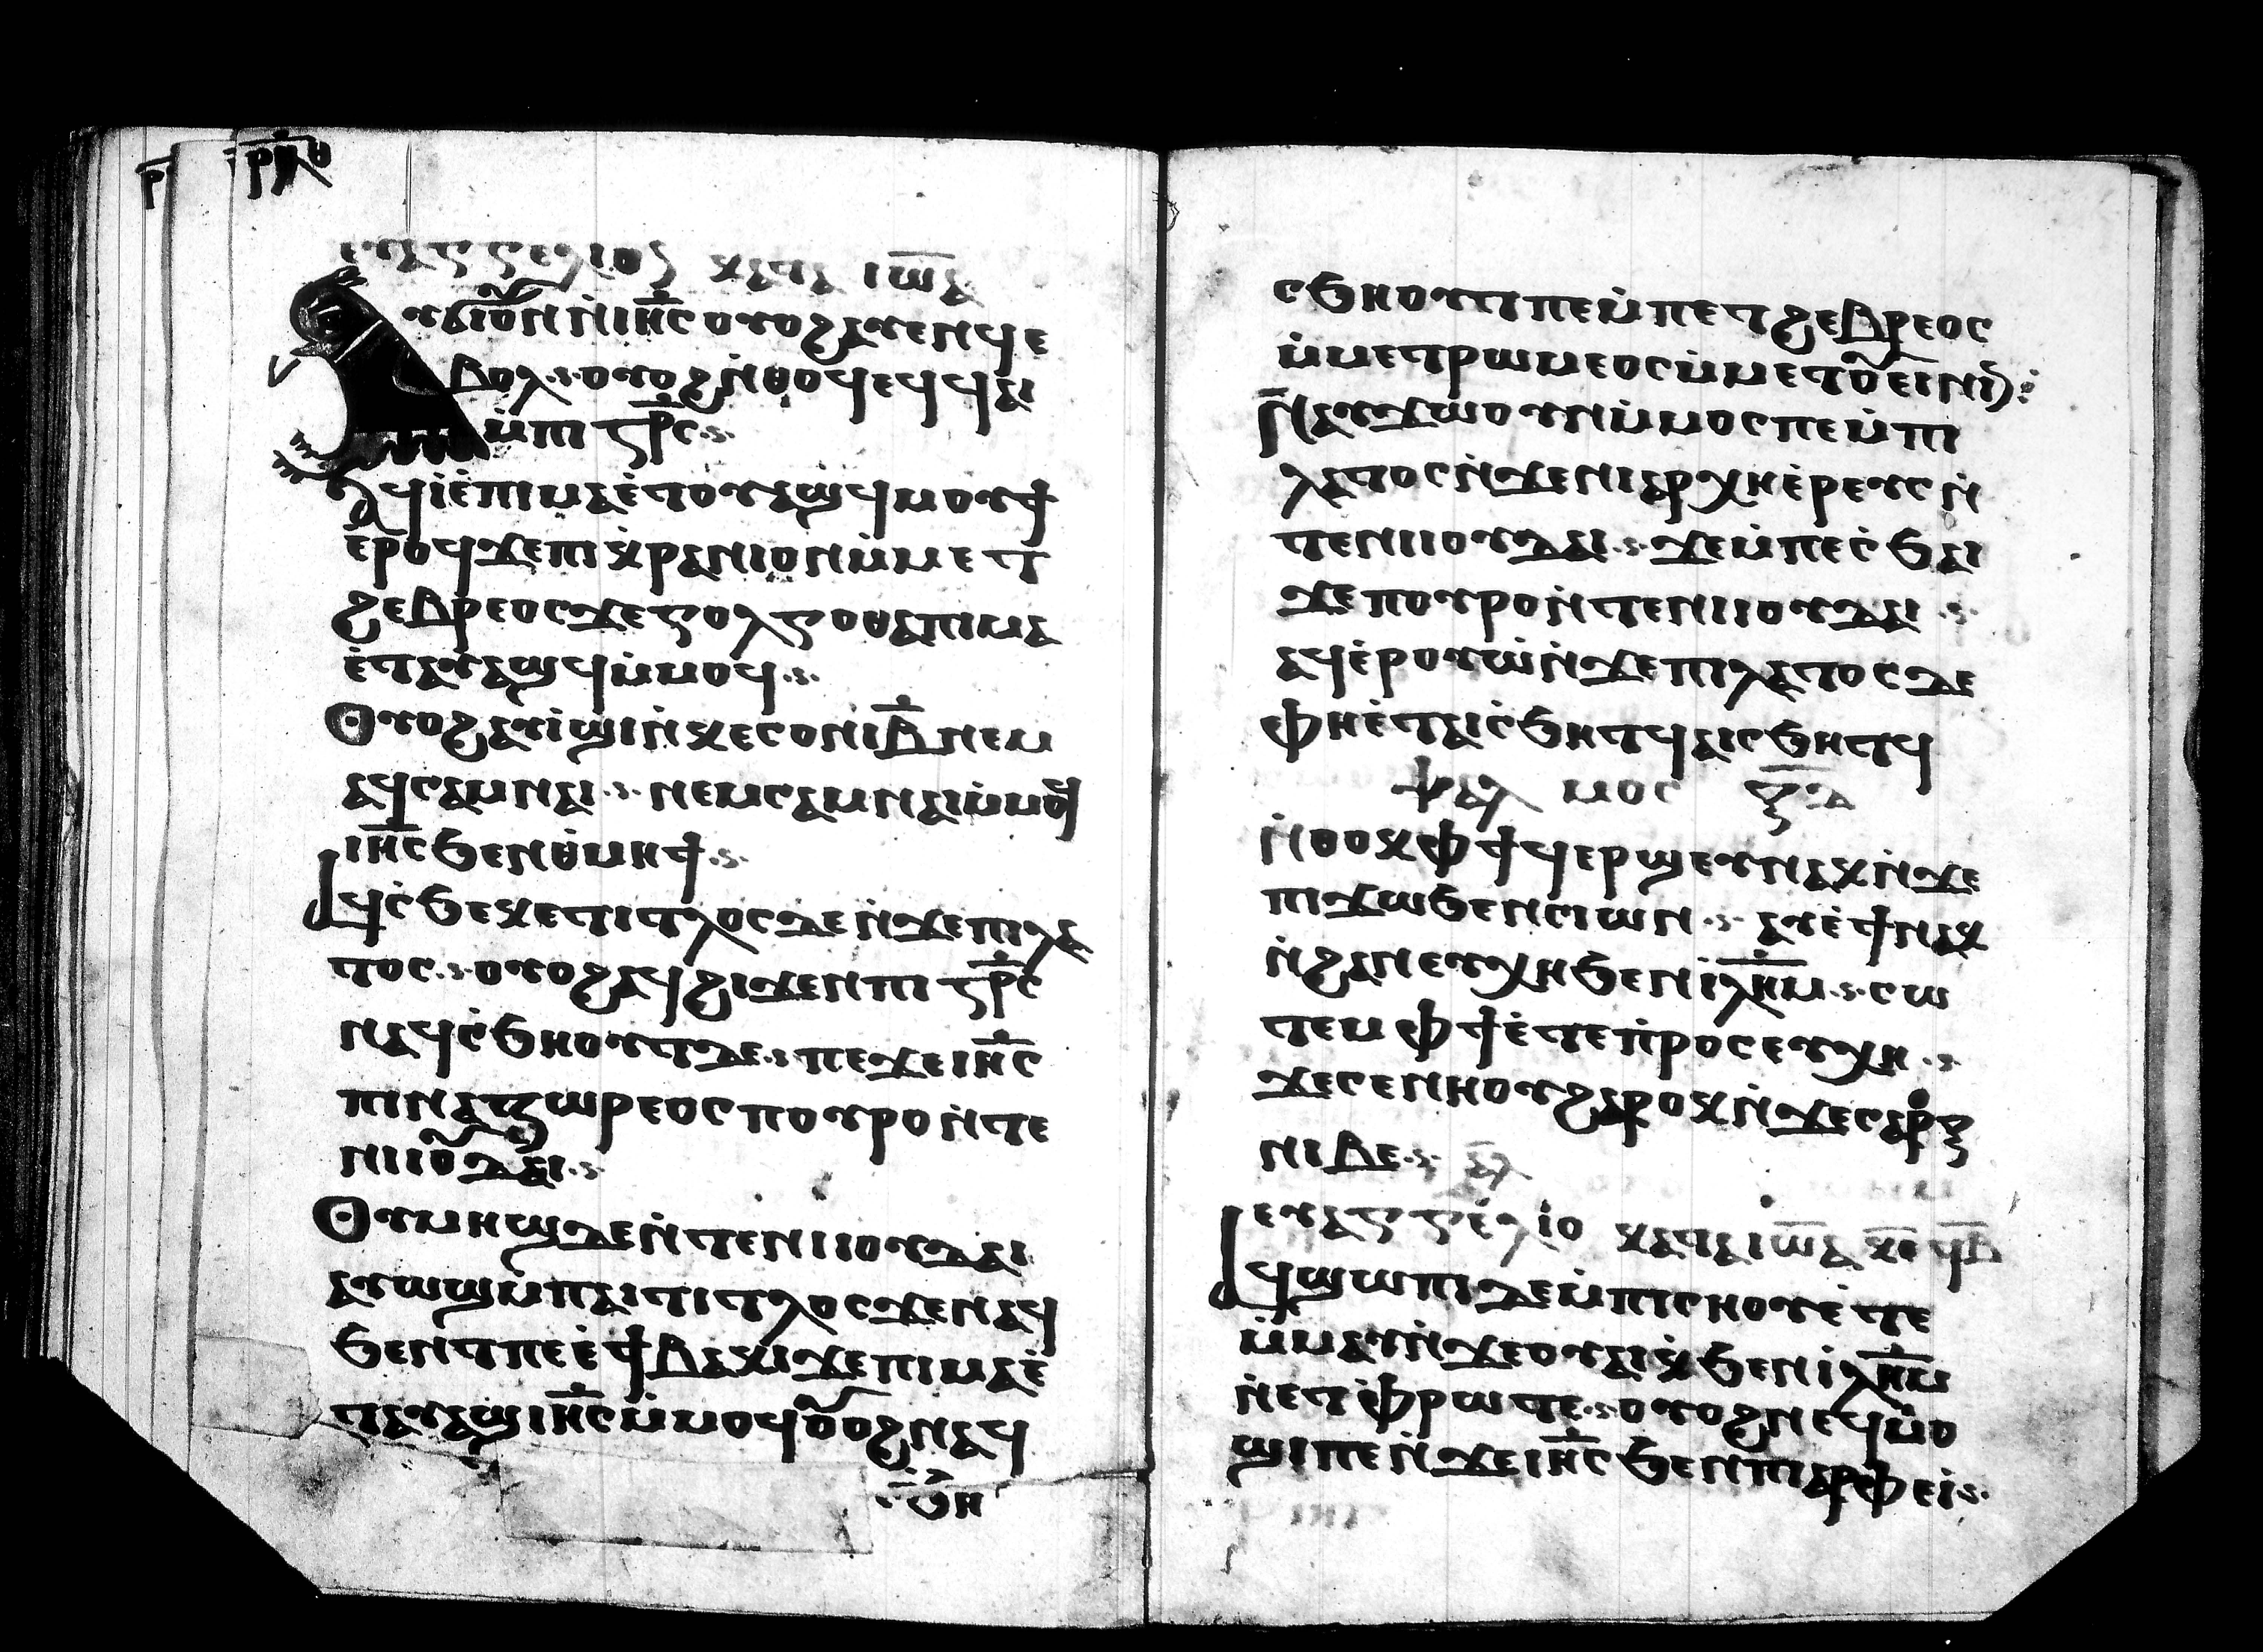 ⲣⲕⲑ
ⲉⲩⲁⲅⲅⲉⲗⲓⲟⲛ ⲕⲁⲧⲁ ⲓⲱ̅ⲁ
ⲩϭⲓⲟⲩⲛ ⲛ̇ⲓⲏ̅ⲥ ⲟⲩⲟϩ ⲁⲩⲉⲛϥ ⲉ
ⲃⲟⲗ ⲟⲩⲟϩ ⲛ̇ⲑⲟϥ ⲉϥϥⲁⲓ
ⲙ̇ⲡⲓ ⲥ̅ⲧ̅ⲣ̅ⲥ
ⲁϥⲓ̇ ⲉ̇ⲡⲓⲙⲁ ⲉ̇ⲧⲟⲩⲁϣϥ ⲙⲟⲩϯ
ⲉ̇ⲣⲟϥ ϫⲉ ⲡⲓⲕ̇ⲣⲁⲛⲓⲟⲛ ⲙ̇ⲙⲉⲧ
ϩⲉⲃⲣⲉⲟⲥ ϫⲉ ⲅⲟⲗⲅⲟⲑⲁ ⲡⲓⲙⲁ
ⲉ̇ⲧⲁⲩⲁϣϥ ⲙ̇ⲙⲟϥ
ⲟⲩⲟϩ ⲁⲩⲓ̇ϣⲓ ⲛ̇ⲕⲉⲥⲟⲛⲓ ⲃ̅ ⲛⲉⲙ
ⲁϥ ⲥⲁⲙⲛⲁⲓ ⲛⲉⲙ ⲥⲁⲙⲛⲁⲓ ⲙ̇ⲙⲟϥ
ⲓⲏ̅ⲥ ϧⲉⲛ ⲑ̇ⲙⲏϯ
ⲁϥⲥ̇ϧⲉ ⲕⲉⲧⲓⲧⲗⲟⲥ ⲇⲉ ⲛ̇ϫⲉ ⲡⲓⲗⲁ
ⲧⲟⲥ ⲟⲩⲟϩ ⲁϥϩⲓϫⲉⲛ ⲡⲓ ⲥ̅ⲧ̅ⲣ̅ⲥ
ⲛⲁϥⲥ̇ϧⲏⲟⲩⲧ ⲇⲉ ⲡⲉ ϫⲉ ⲓⲏ̅ⲥ
ⲡⲓⲛⲁⲍⲱⲣⲉⲟⲥ ⲡⲟⲩⲣⲟ ⲛ̇ⲧⲉ
ⲛⲓⲓⲟⲩⲇⲁⲓ
ⲟⲩⲙⲏϣ ⲇⲉ ⲛ̇ⲧⲉ ⲛⲓⲓⲟⲩⲇⲁⲓ
ⲁⲩⲱϣ ⲙ̇ⲡⲁⲓⲧⲓⲧⲗⲟⲥ ϫⲉ ⲛⲁϥ
ϧⲉⲛⲧ ⲡⲉ ⲉ̇ϯⲃⲁⲕⲓ ϫⲉ ⲡⲓⲙⲁ ⲉ̇
ⲧⲁⲩⲁϣ ⲓⲏ̅ⲥ ⲙ̇ⲙⲟϥ ⲟⲩⲟϩ ⲛⲁϥ
ⲥ̇ϧⲏ
ⲥϧⲏⲟⲩⲧ ⲡⲉ ⲙ̇ⲡⲉⲧϩⲉⲃⲣⲉⲟⲥ
ⲙ̇ⲙⲉⲧⲣⲱⲙⲉⲟⲥ ⲙ̇ⲙⲉⲧⲟⲩⲉⲓⲛⲓⲛ
ⲛⲁⲩϫⲱ ⲟⲩⲛ ⲙ̇ⲙⲟⲥ ⲡⲉ ⲙ̇ⲡⲓ
ⲗⲁⲧⲟⲥ ⲛ̇ϫⲉ ⲛⲓⲁⲣⲭⲏⲉ̇ⲣⲉⲩⲥ ⲛ̇
ⲧⲉ ⲛⲓⲓⲟⲩⲇⲁⲓ ϫⲉ ⲙ̇ⲡⲉⲥ̇ϧⲁⲓ
ϫⲉ ⲡⲟⲩⲣⲟ ⲛ̇ⲧⲉ ⲛⲓⲓⲟⲩⲇⲁⲓ
ⲁϥⲉ̇ⲣⲟⲩⲱ̇ ⲛ̇ϫⲉ ⲡⲓⲗⲁⲧⲟⲥ ϫⲉ
ⲫⲏ ⲉ̇ⲧⲁⲓⲥ̇ϧⲏⲧϥ ⲁⲓⲥϧⲏⲧϥ
ⲯⲁⲗ ⲙⲟⲥ ⲝ̅ⲇ̅
ⲛ̇ⲑⲟⲕ ⲫϯ ϥⲉⲣϣⲉⲩ ⲛⲁⲕ ⲛ̇ϫⲉ
ⲡⲓϫⲱ ϧⲉⲛ ⲥⲓⲱⲛ ⲁⲩⲉ̇ϯ ⲛⲁⲕ
ⲛ̇ϩⲁⲛⲉⲩⲭⲏ ϧⲉⲛ ⲓ̅ⲗ̅ⲏ̅ⲙ ⲥⲱ
ⲧⲉⲙ ⲫϯ ⲉ̇ⲧⲉⲡ̇ⲣⲟⲥⲉⲩⲭⲏ
ϫⲉ ⲥⲉⲛⲏⲟⲩ ϩⲁⲣⲟⲕ ⲛ̇ϫⲉ ⲥⲁⲣⲝ
ⲛⲓⲃⲉ ⲁⲗ
ⲉⲩⲁⲅⲅⲉⲗⲓⲟ ⲕⲁⲧⲁ ⲓⲱ̅ⲁ ⲕⲉ ϥⲃ
ⲁϥϣⲱⲡⲓ ⲇⲉ ⲙ̇ⲡⲓⲥⲏⲟⲩ ⲉ̇ⲧⲉ
ⲙ̇ⲙⲁⲩ ⲛ̇ϫⲉ ⲟⲩⲁⲓⲕ ϧⲉⲛ ⲓ̅ⲗ̅ⲏ̅ⲙ
ⲛⲉ ⲧ̇ⲫⲣⲱ ⲧⲉ ⲟⲩⲟϩ ⲛⲉϥⲙ̇ⲟ
ϣⲓ ⲡⲉ ⲛ̇ϫⲉ ⲓⲏ̅ⲥ ϧⲉⲛ ⲡⲓⲉⲣⲫⲉⲓ